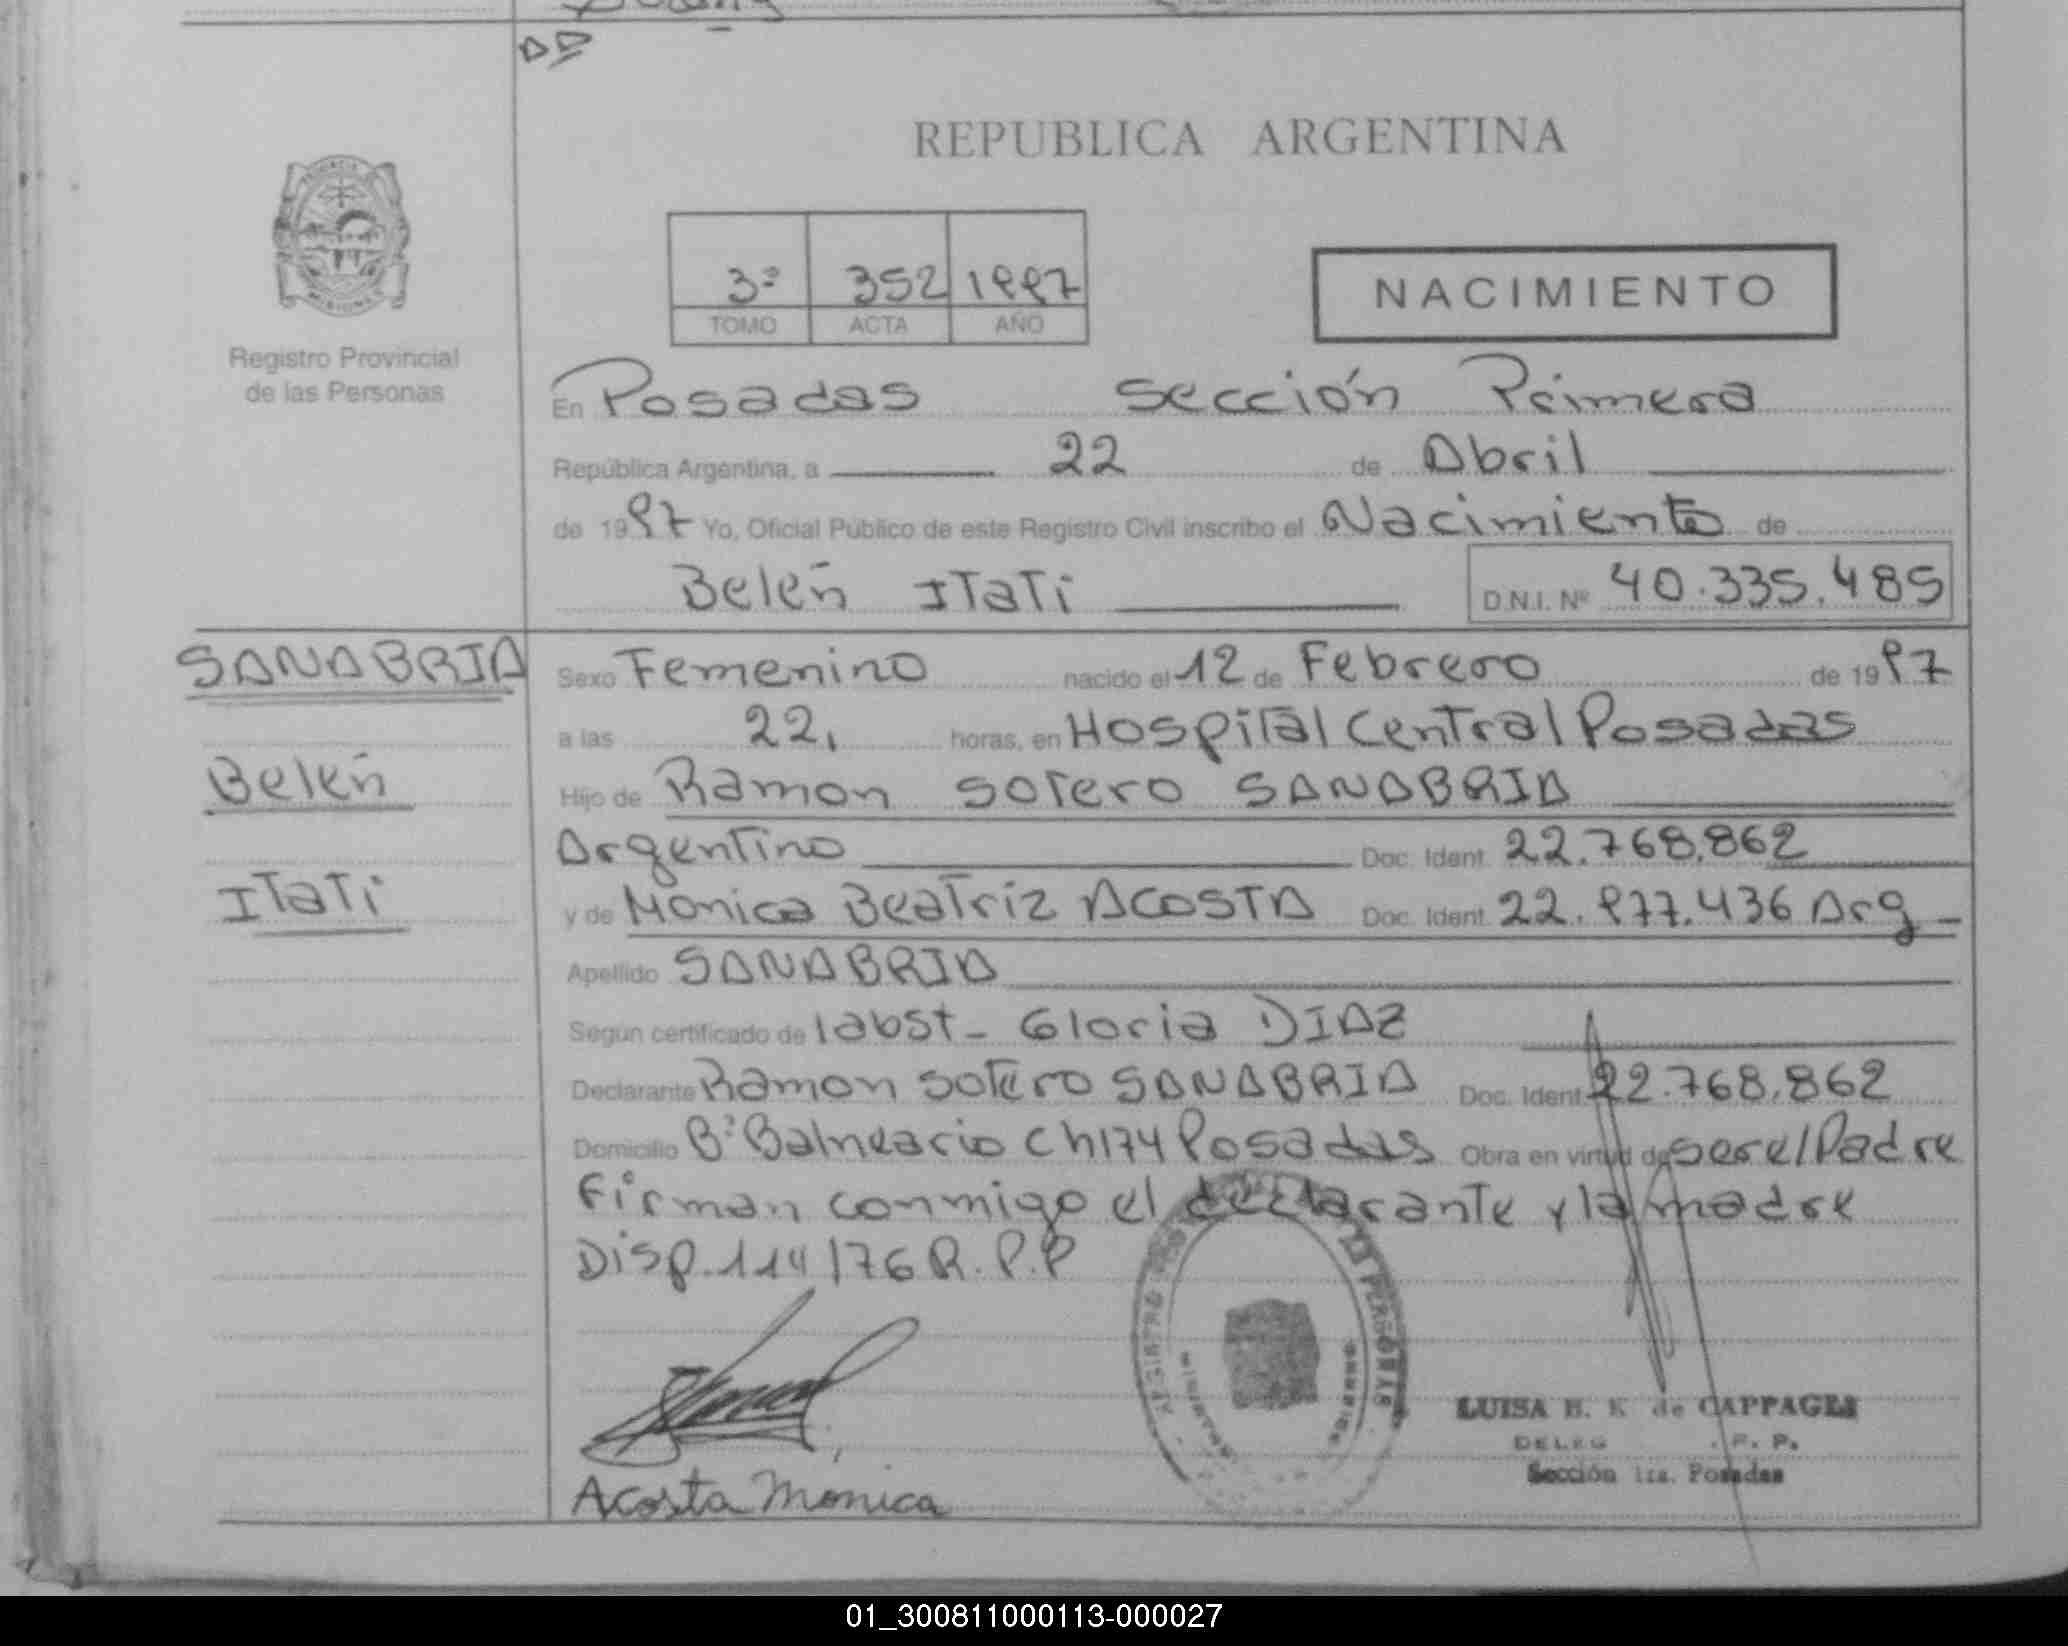 REPUBLICA ARGENTINA
3º 352 1997
TOMO ACTA AÑO
NACIMIENTO
Registro Provincial
de las Personas
En Posadas Sección Primera
República Argentina, a 22 de Abril
de 1997 Yo, Oficial Público de este Registro Civil inscribo el Nacimiento de
Belén ITaTi D.N.I. Nº 40.335.485
SANABRIA
Belén
ITaTi
Sexo Femenino nacido el 12 de Febrero de 1997
a las 22, horas, en Hospital Central Posadas
Hijo de Ramon Sotero SANABRIA
Argentino Doc. Ident. 22.768.862
y de Monica Beatriz ACOSTA Doc. Ident. 22.977.436 Arg
Apellido SANABRIA
Según certificado de 1abst- Gloria DIAZ
Declarante Ramon Sotero SANABRIA Doc. Ident. 22.768.862
Domicilio Bº Balneario Ch174 Posadas Obra en virtud de ser el Padre
Firman conmigo el declarante y la madre
Disp. 114/76 R.P.P
Acosta Monica
LUISA H. K de CAPPAGLI
DELEG . P. P.
Sección 1ra. Posadas
01_300811000113-000027